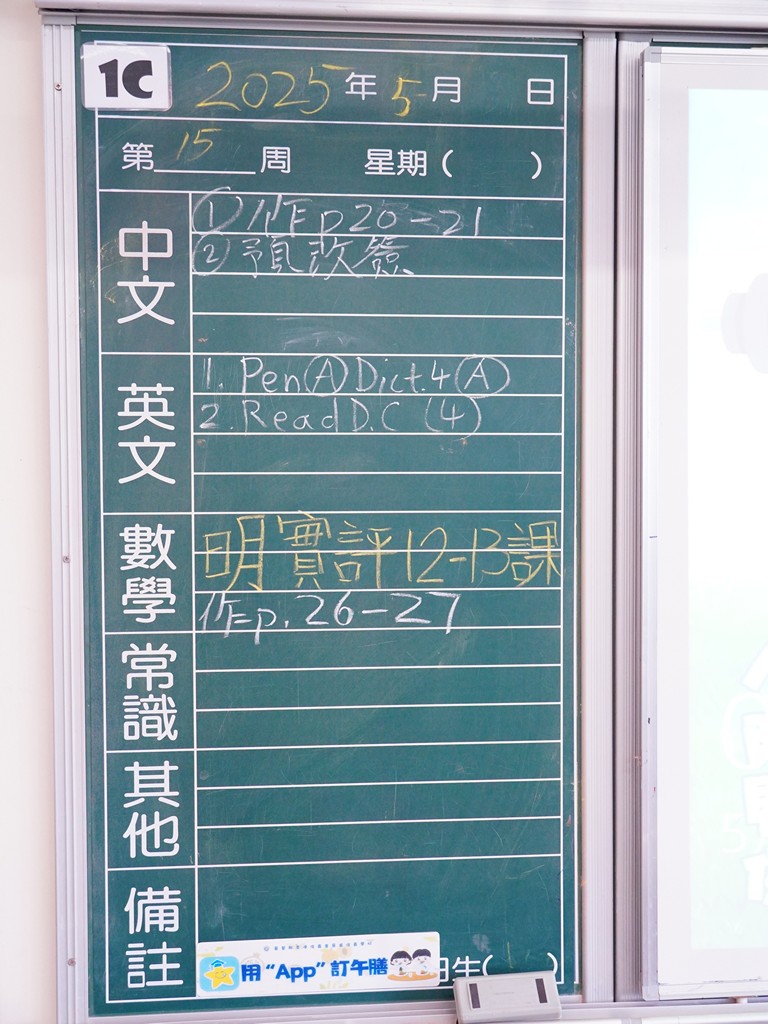 1C
2025年5月 日
第15周 星期( )
中文
①作p20-21
②預改簽
英文
1. Pen Ⓐ Dict.4 Ⓐ
2. Read D.C (4)
數學
明實評12-13課
作p.26-27
常識
其他
備註
用“App”訂午膳
生( )